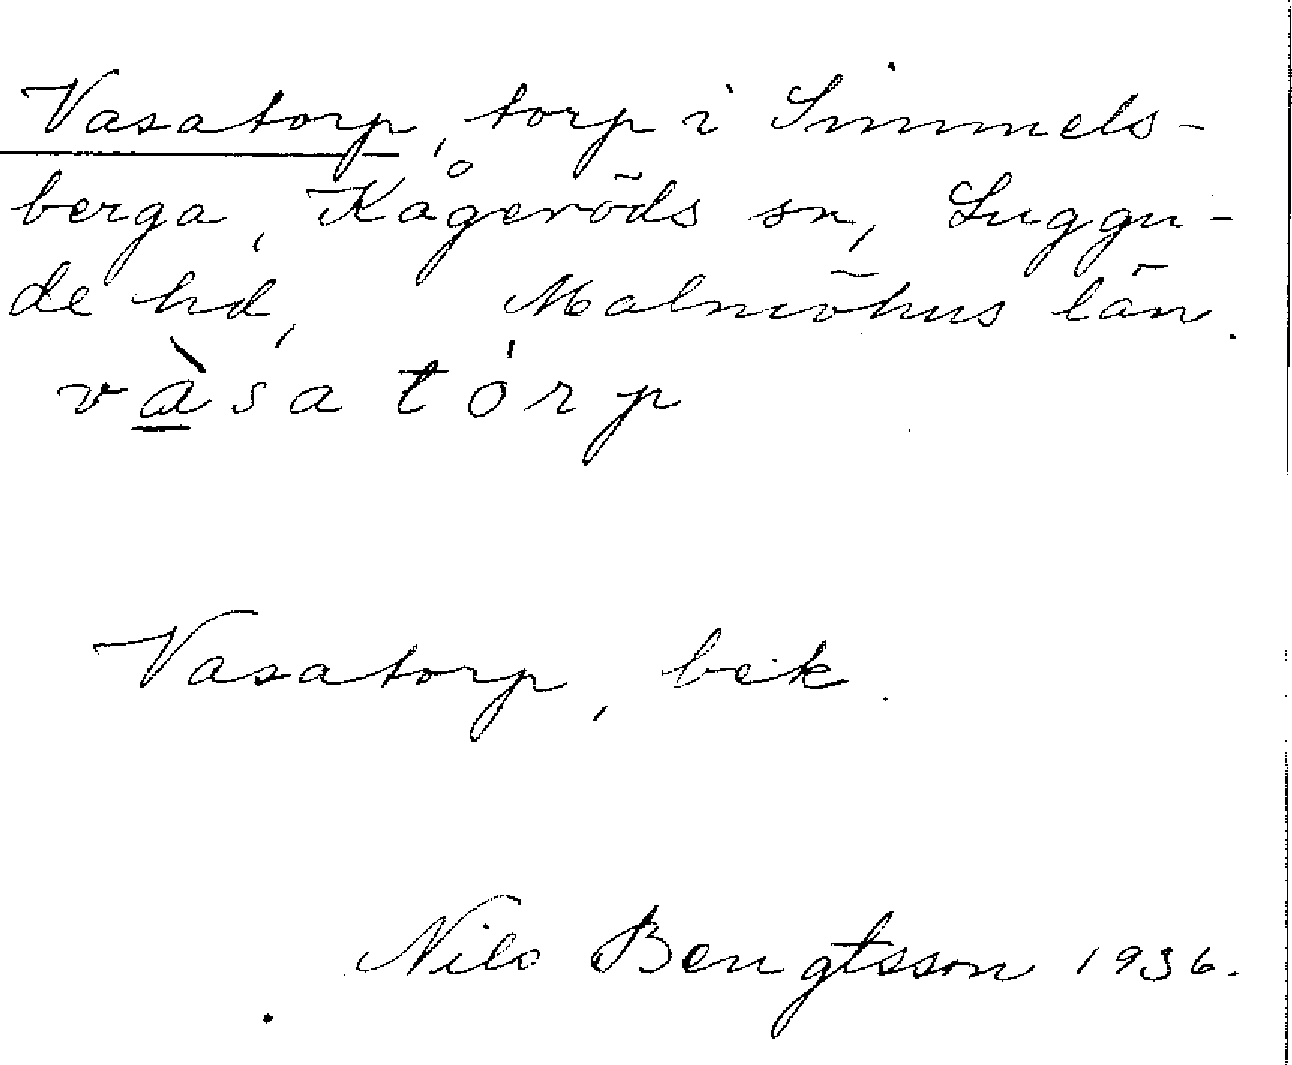 Vasatorp, torp i Simmels-
berga, Kågeröds sn, Luggu-
de hd, Malmöhus län.
vàsatórp
Vasatorp, bek.
Nils Bengtsson 1936.